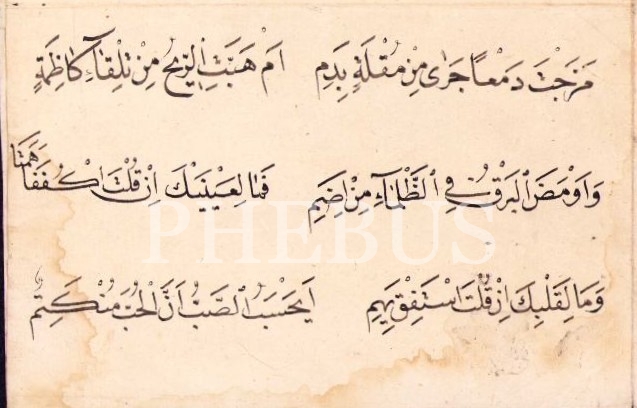 مَزَجْتَ دَمْعًا جَرٰى مِنْ مُقْلَةٍ بِدَمِ اَمْ هَبَّتِ الرِّيحُ مِنْ تِلْقَاۤءِ كَاظِمَةٍ
وَاَوْمَضَ الْبَرْقُ فِي الظَّلْمَاۤءِ مِنْ اِضَمِ فَمَا لِعَيْنَيْكَ اِنْ قُلْتَ اكْفُفَا هَمَتَا
وَمَا لِقَلْبِكَ اِنْ قُلْتَ اسْتَفِقْ يَهِمِ اَيَحْسَبُ الصَّبُّ اَنَّ الْحُبَّ مُنْكَتِمٌ
PHEBUS